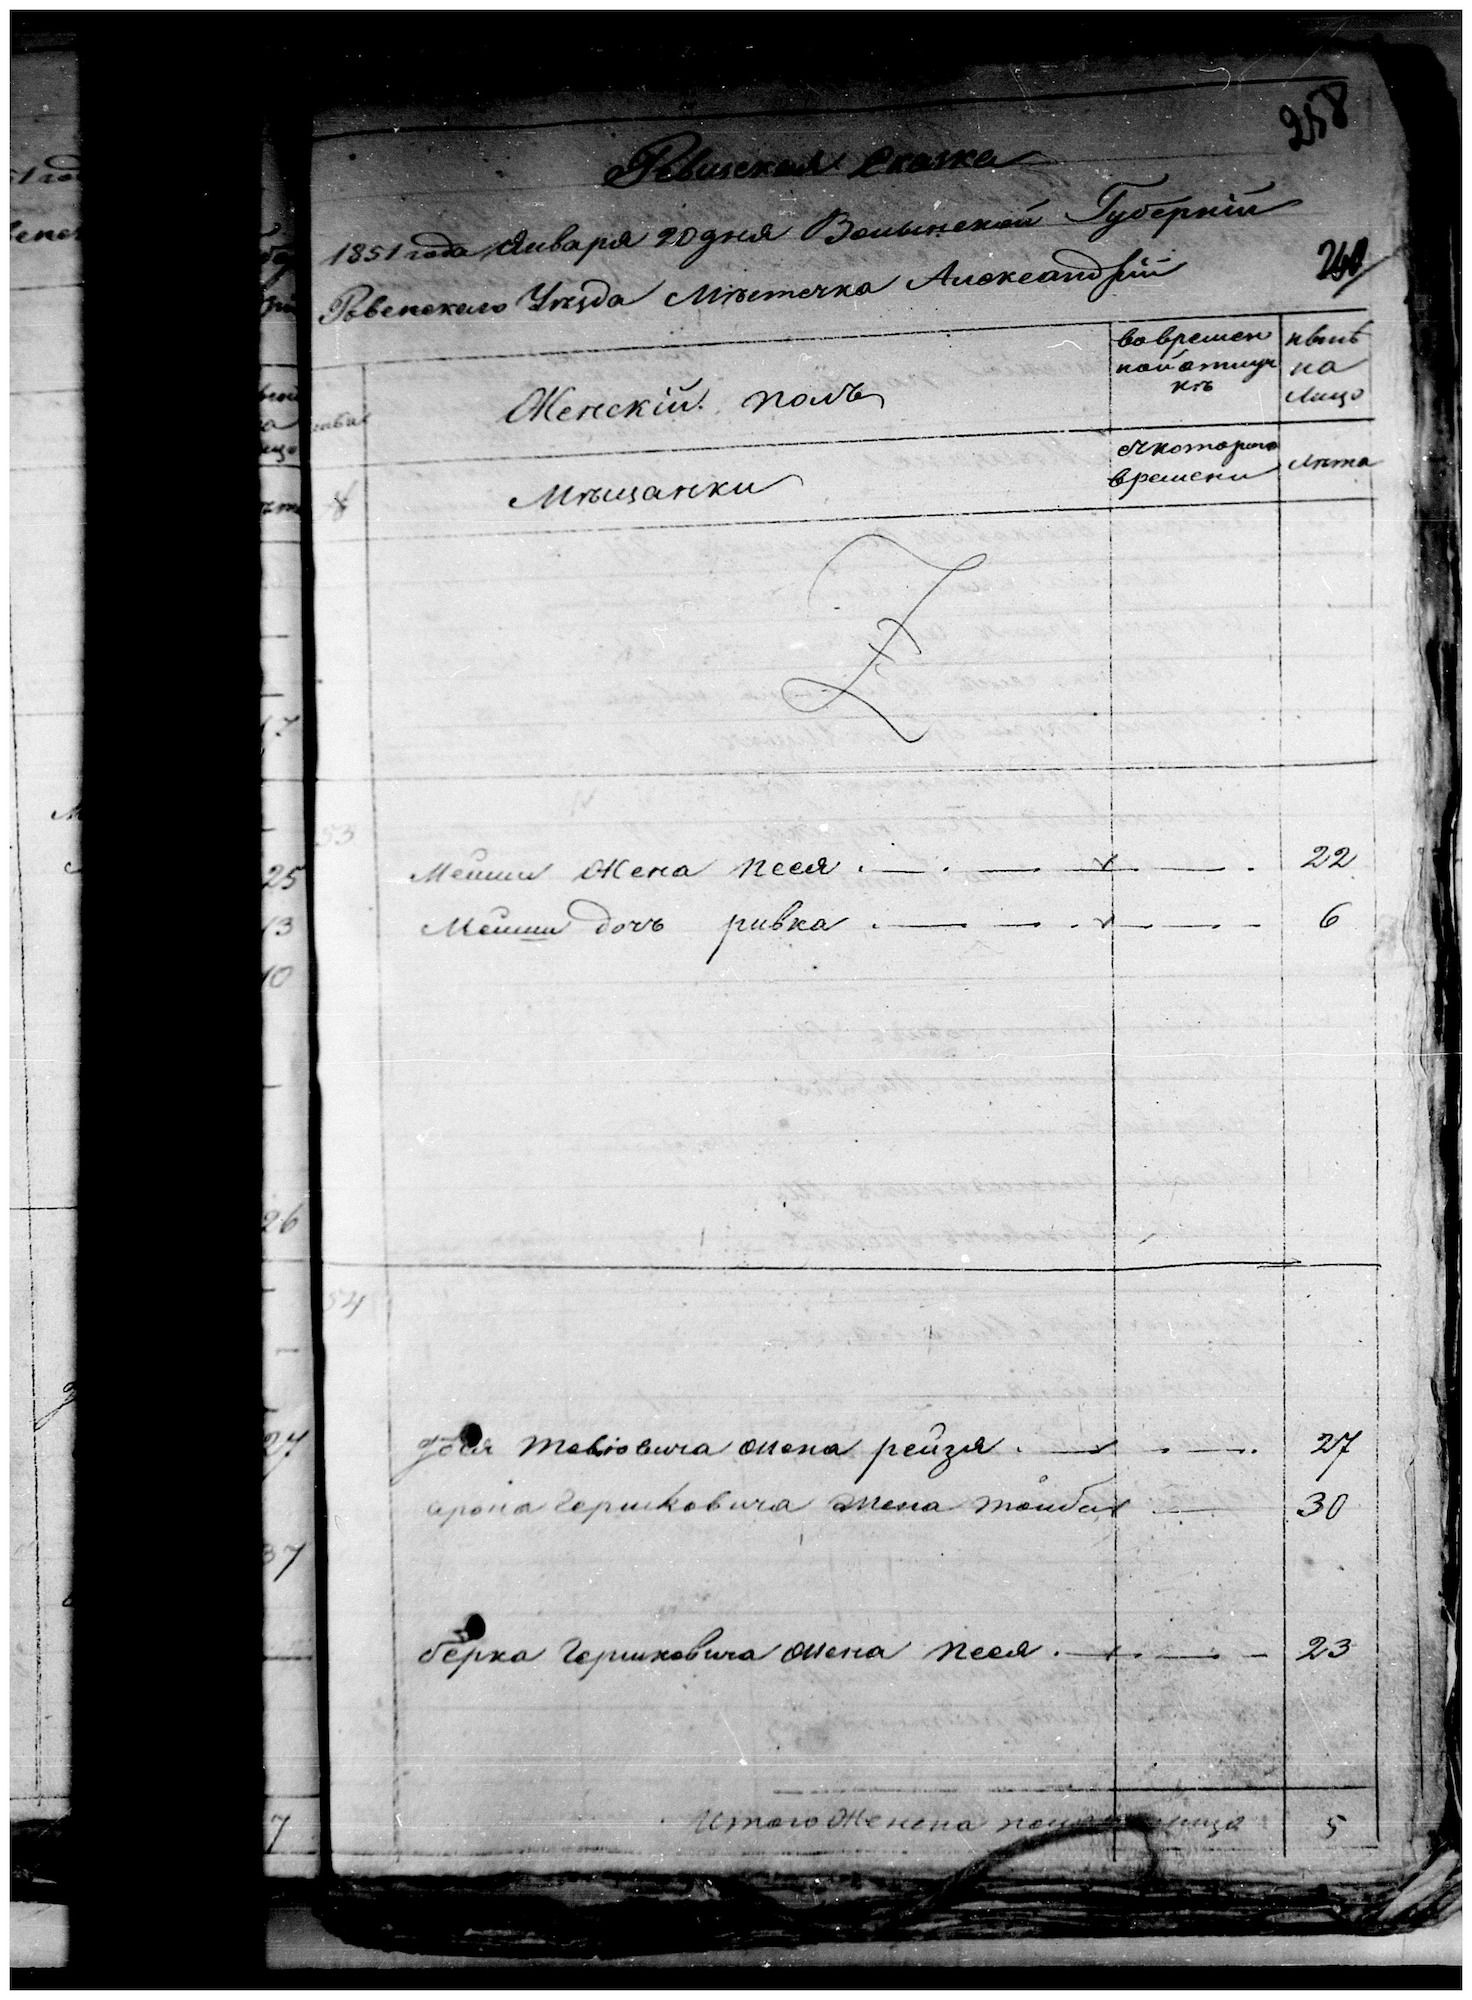 258
Ревизская Сказка
1851 года Января 20 дня Волынской Губерніи
260
Ровенского Уѣзда Мѣстечка Александріи
Женскій полъ
во времен
ной отлуч
кѣ
нынѣ
на
лицо
Мѣщанки
съ которого
времени
Лѣта
8
53
Мейши Жена Песя 22
Мейши дочь ривка 6
54
Тевіовича жена рейзя 27
арона Гершковича жена тойба 30
берка Гершковича жена Песя 23
Итого Женска пола лица 5
25
13
10
26
27
37
7